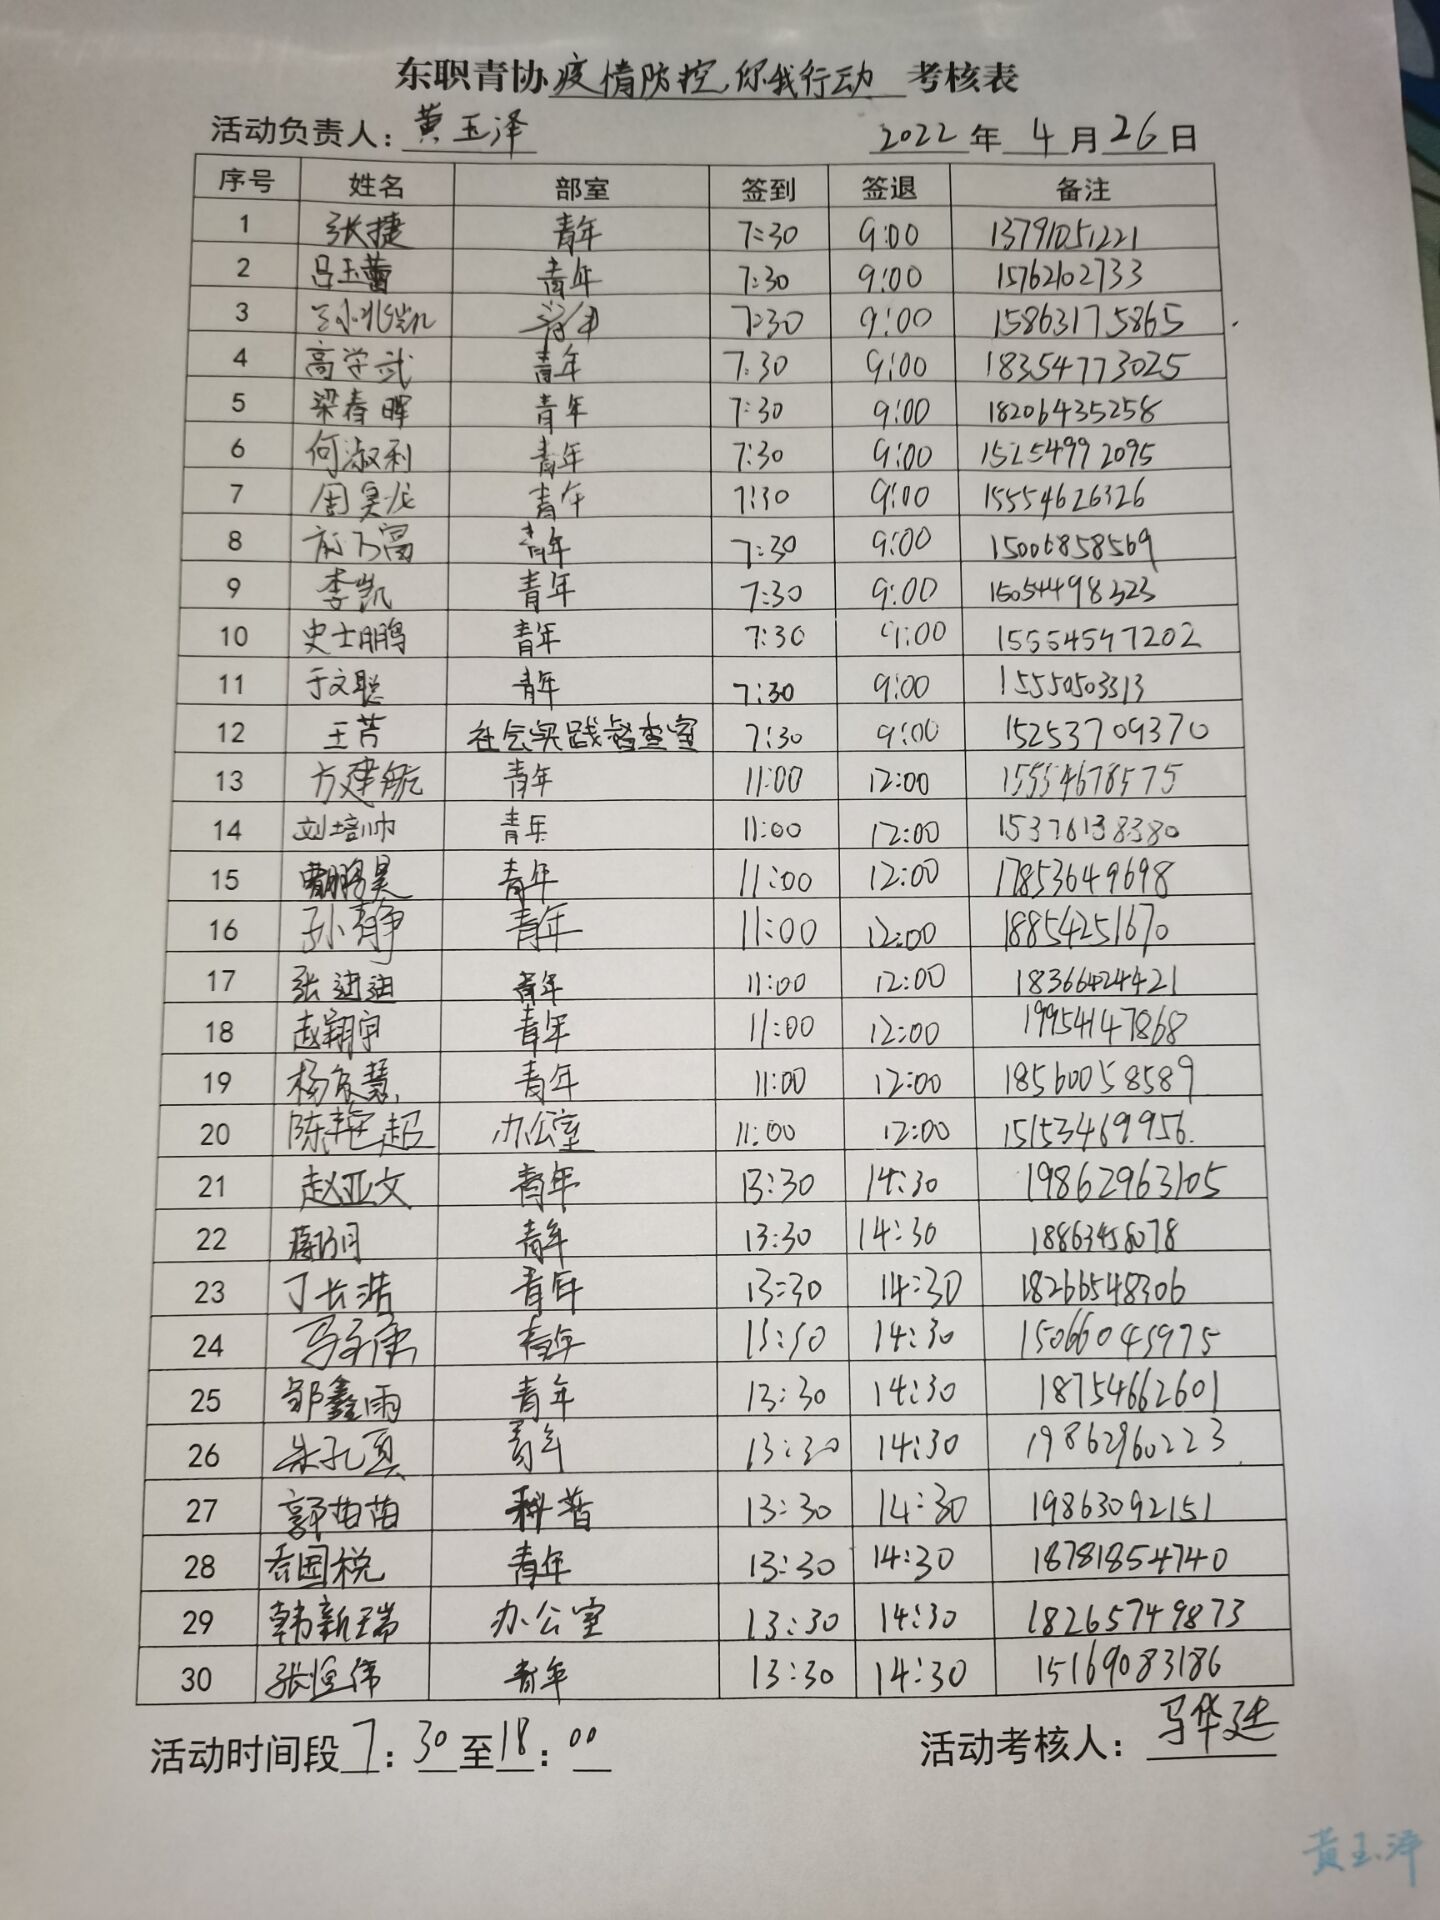 东职青协疫情防控,你我行动 考核表
活动负责人:黄玉泽 2022年4月26日
序号 姓名 部室 签到 签退 备注
1 张捷 青年 7:30 9:00 13791051221
2 吕玉蕾 青年 7:30 9:00 15762102733
3 7:30 9:00 15863175865
4 高学武 青年 7:30 9:00 18354773025
5 梁春晖 青年 7:30 9:00 18206435258
6 何淑利 青年 7:30 9:00 15254992095
7 周昊龙 青年 7:30 9:00 15554626326
8 青年 7:30 9:00 15006858569
9 李凯 青年 7:30 9:00 15054498323
10 史士鹏 青年 7:30 9:00 15554547202
11 于文聪 青年 7:30 9:00 15550503313
12 王芳 社会实践督查室 7:30 9:00 15253709370
13 方建航 青年 11:00 12:00 15554678575
14 刘培帅 青年 11:00 12:00 15376138380
15 曹鹏昊 青年 11:00 12:00 17853649698
16 孙静 青年 11:00 12:00 18854251670
17 张迪迪 青年 11:00 12:00 18366424421
18 赵翔宇 青年 11:00 12:00 19954147868
19 青年 11:00 12:00 18560058589
20 陈艳超 办公室 11:00 12:00 15153469956
21 赵亚文 青年 13:30 14:30 19862963105
22 青年 13:30 14:30 18863458078
23 丁长浩 青年 13:30 14:30 18266548306
24 青年 13:30 14:30 15066045975
25 邹鑫雨 青年 13:30 14:30 18754662601
26 青年 13:30 14:30 19862960223
27 郭苗苗 科普 13:30 14:30 19863092151
28 青年 13:30 14:30 18781854740
29 韩新瑞 办公室 13:30 14:30 18265749873
30 张恒伟 青年 13:30 14:30 15169083186
活动时间段7:30至18:00 活动考核人:马华廷
黄玉泽